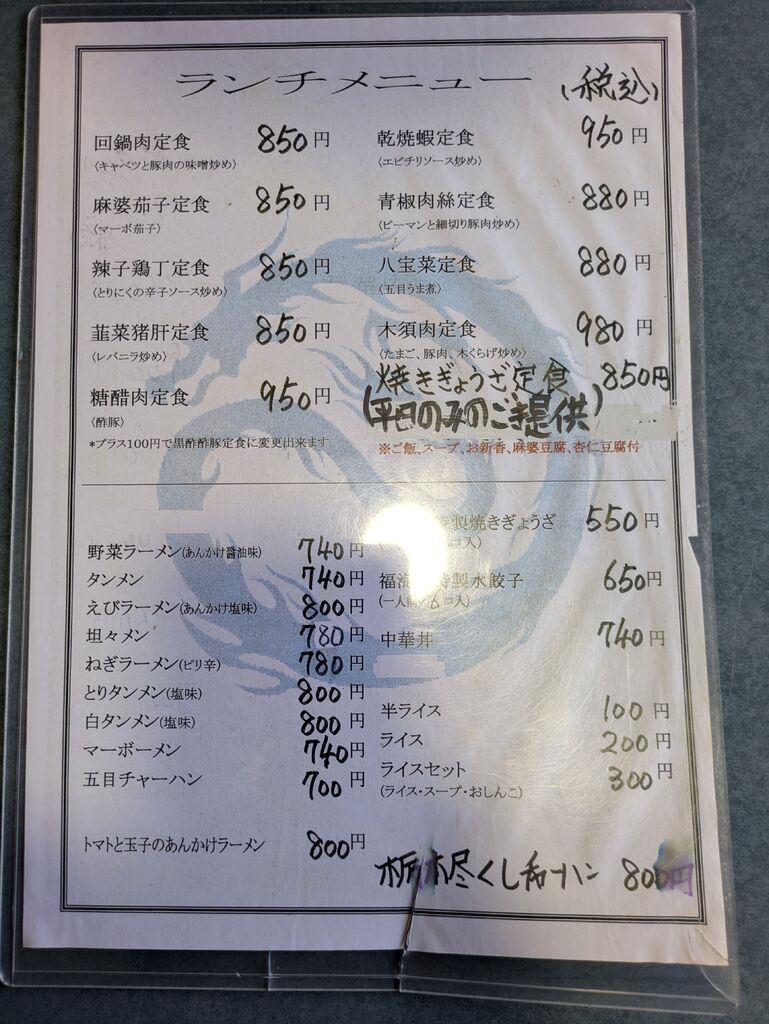 ランチメニュー (税込)
回鍋肉定食 850円
〈キャベツと豚肉の味噌炒め〉
麻婆茄子定食 850円
〈マーボ茄子〉
辣子鶏丁定食 850円
〈とりにくの辛子ソース炒め〉
韮菜猪肝定食 850円
〈レバニラ炒め〉
糖醋肉定食 950円
〈酢豚〉
*プラス100円で黒酢酢豚定食に変更出来ます
乾焼蝦定食 950円
〈エビチリソース炒め〉
青椒肉絲定食 880円
〈ピーマンと細切り豚肉炒め〉
八宝菜定食 880円
〈五目うま煮〉
木須肉定食 980円
〈たまご、豚肉、木くらげ炒め〉
焼きぎょうざ定食 850円
(平日のみのご提供)
※ご飯、スープ、お新香、麻婆豆腐、杏仁豆腐付
野菜ラーメン(あんかけ醤油味) 740円
タンメン 740円
えびラーメン(あんかけ塩味) 800円
坦々メン 780円
ねぎラーメン(ピリ辛) 780円
とりタンメン(塩味) 800円
白タンメン(塩味) 800円
マーボーメン 740円
五目チャーハン 700円
トマトと玉子のあんかけラーメン 800円
製焼きぎょうざ 550円
コ入)
福 特製水餃子 650円
(一人前 コ入)
中華丼 740円
半ライス 100円
ライス 200円
ライスセット 300円
(ライス・スープ・おしんこ)
栃木尽くしチャーハン 800円